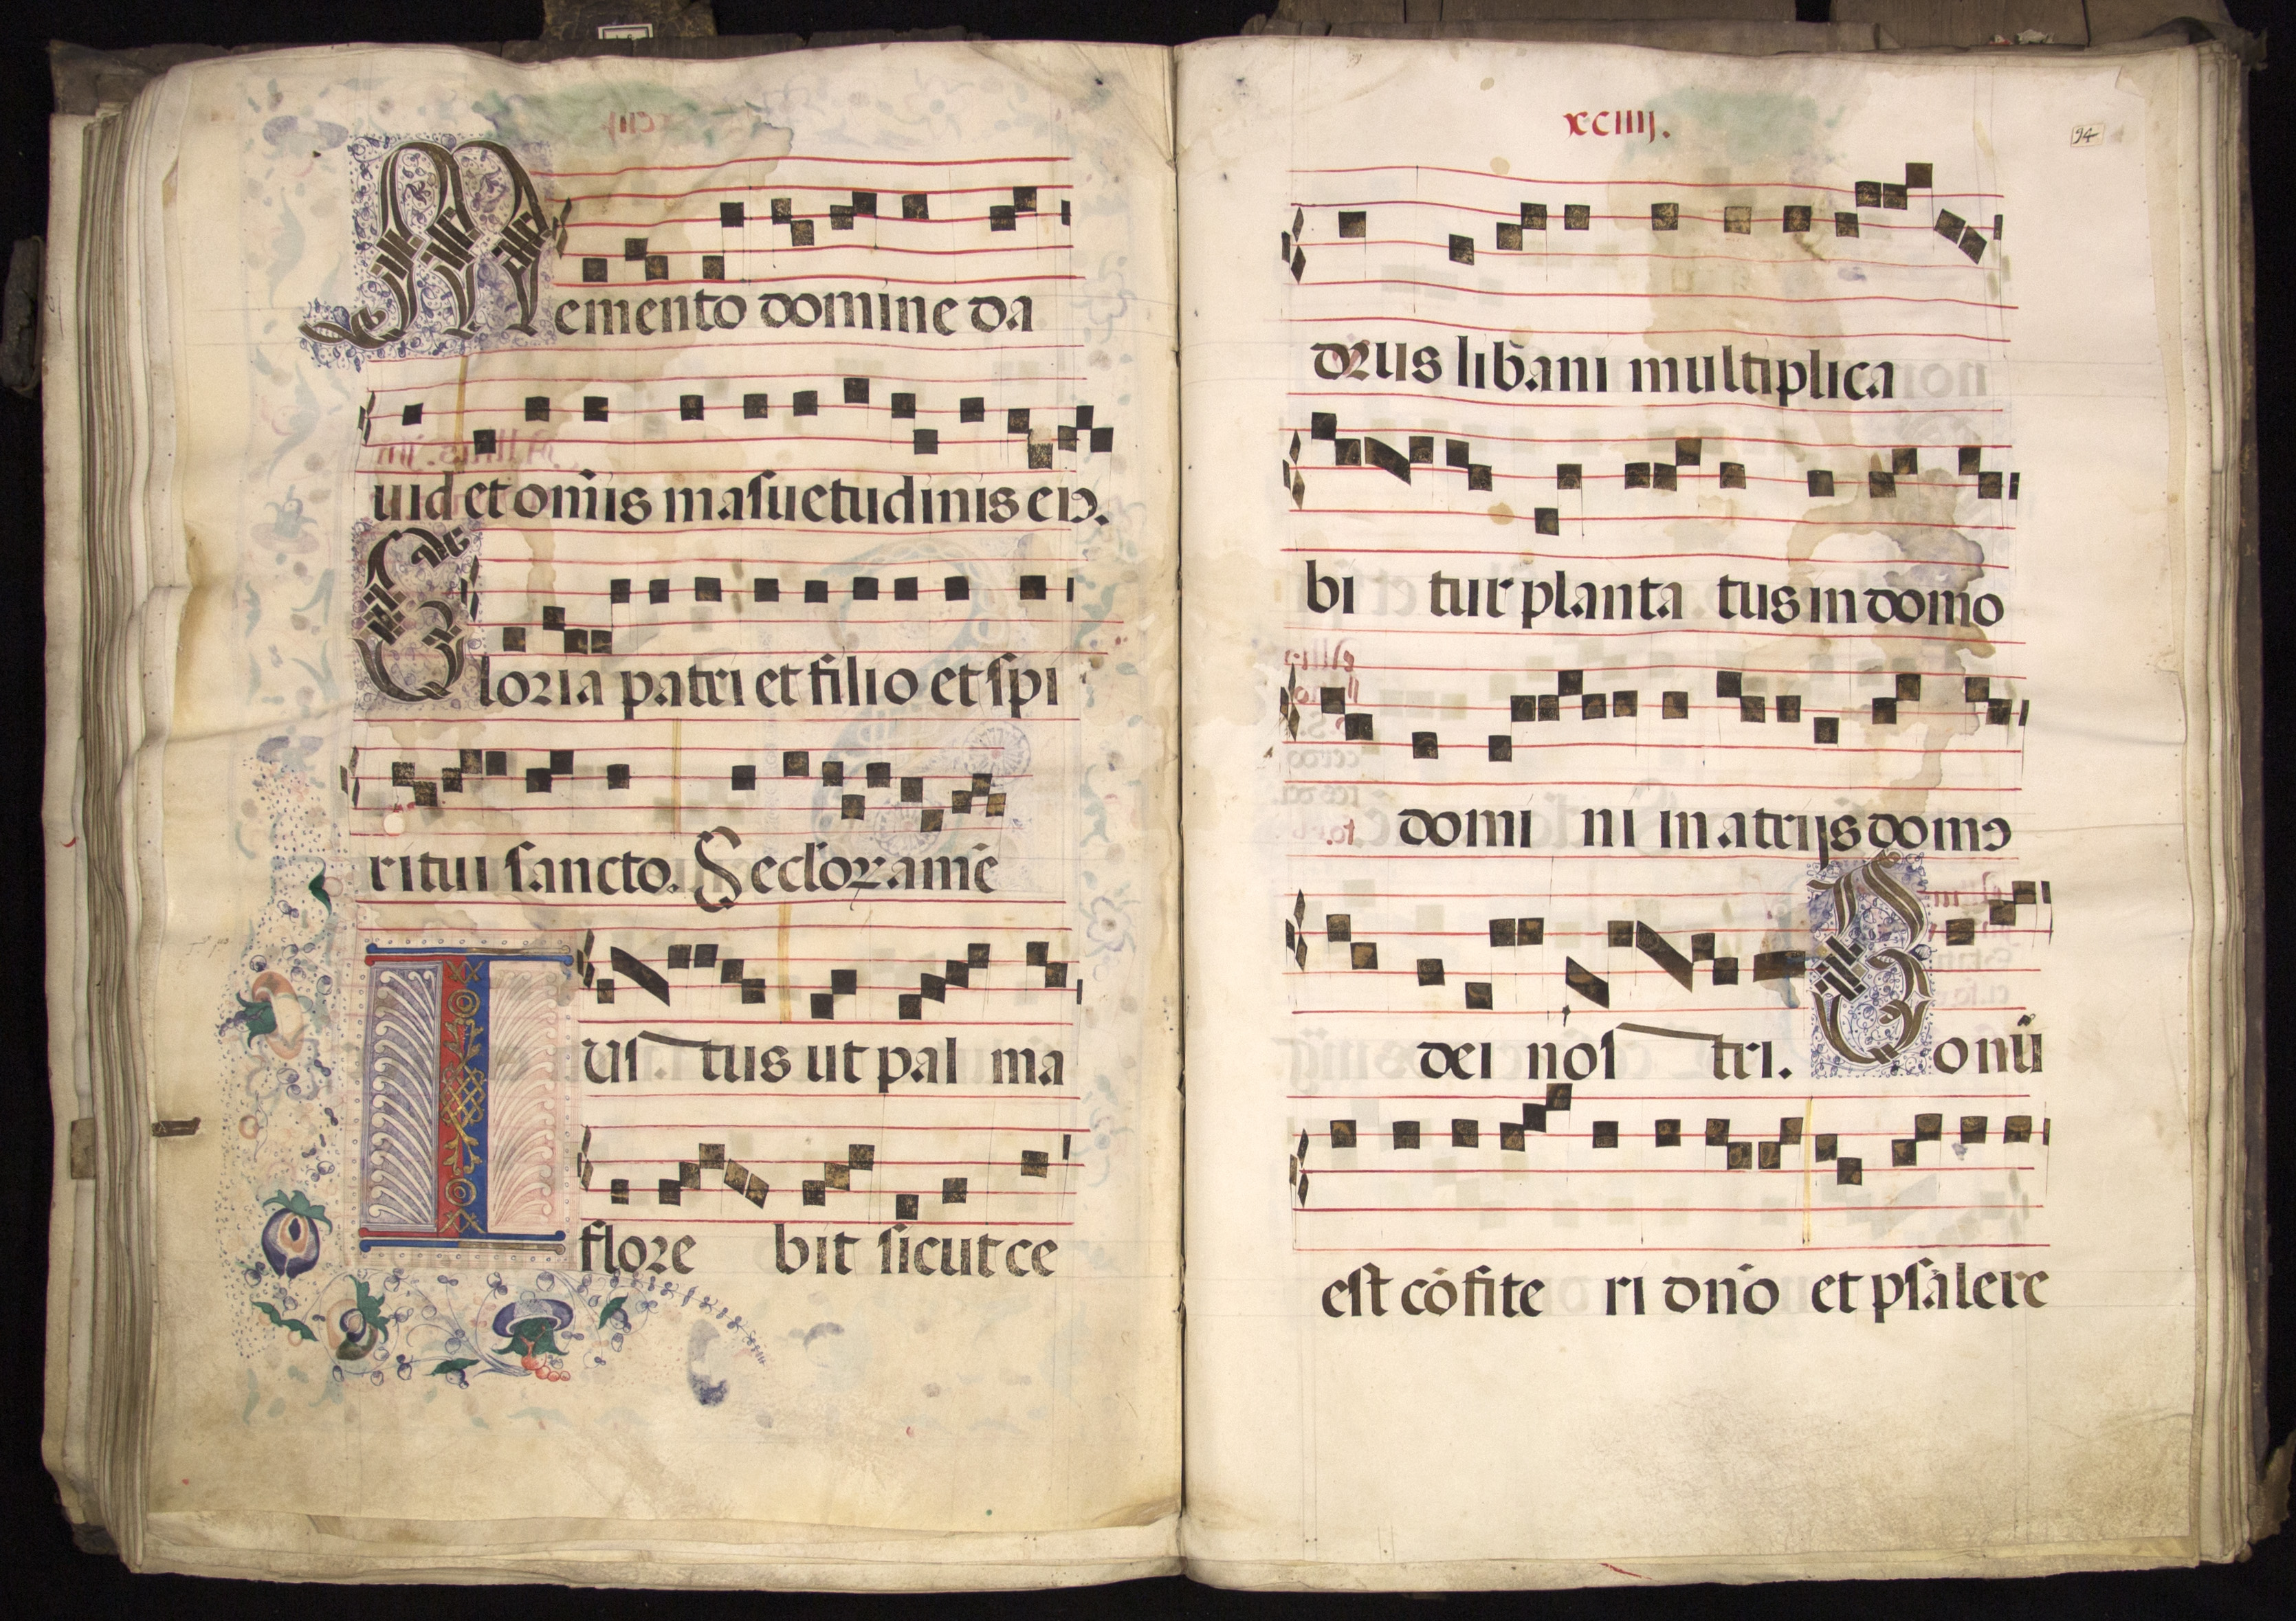 Memento domine da
uid et om̄is masuetudinis eiꝰ.
Gloria patri et filio et spi
ritui sancto. Secloꝝ amē
Ius tus ut pal ma
flore bit sicut ce
xciiij.
94
drus libani multiplica
bi tur planta tus in domo
domi ni in atrijs domꝰ
dei nos tri. Bonū
est cōfite ri dn̄o et psalere